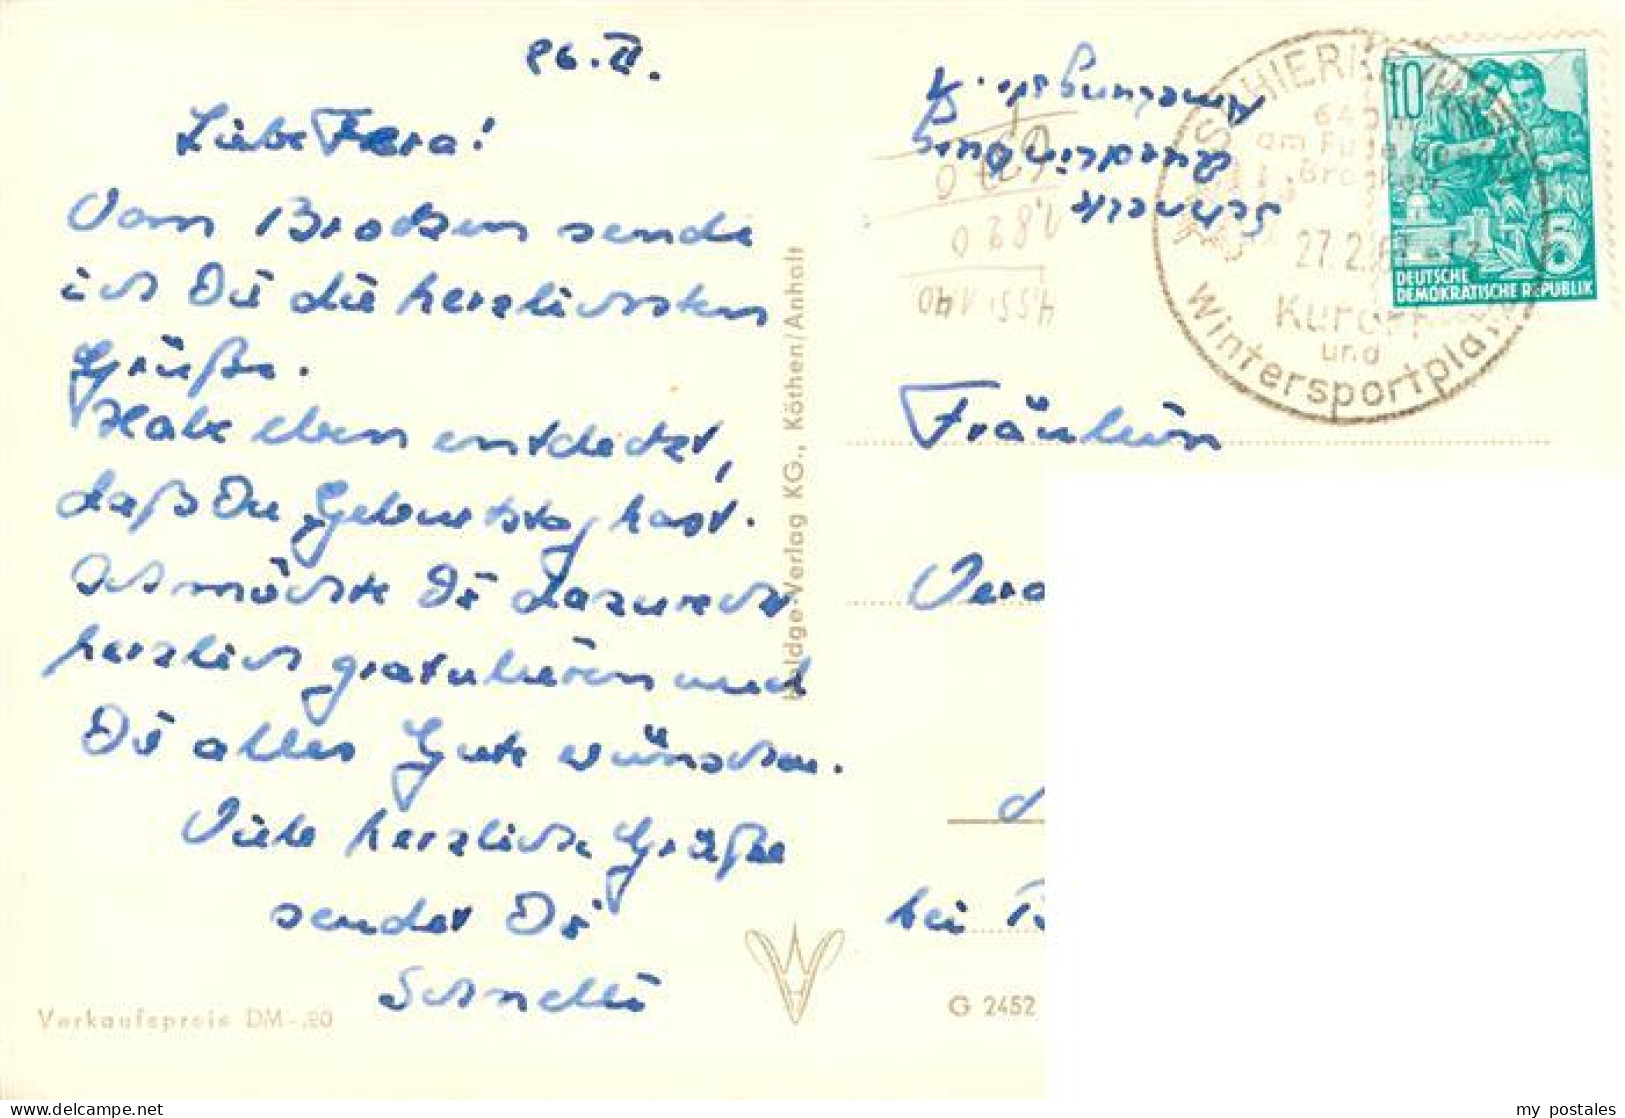 26. II.
Liebe Vera!
Vom Brocken sende
ich Dir die herzlichsten
Grüße.
Habe eben entdeckt,
daß Du Geburtstag hast.
Ich möchte Dir dazu recht
herzlich gratulieren und
Dir alles Gute wünschen.
Viele herzliche Grüße
sendet Dir
Verkaufspreis DM -,20
Heldge-Verlag KG., Köthen/Anhalt
Quedlinburg
1,820
SCHIERKE/HARZ
640 m
am Fuße des
Brocken
27.2.
Kurort
und
Wintersportplatz
10
5
DEUTSCHE
DEMOKRATISCHE REPUBLIK
Fräulein
Vera
bei
G 2452
my postales